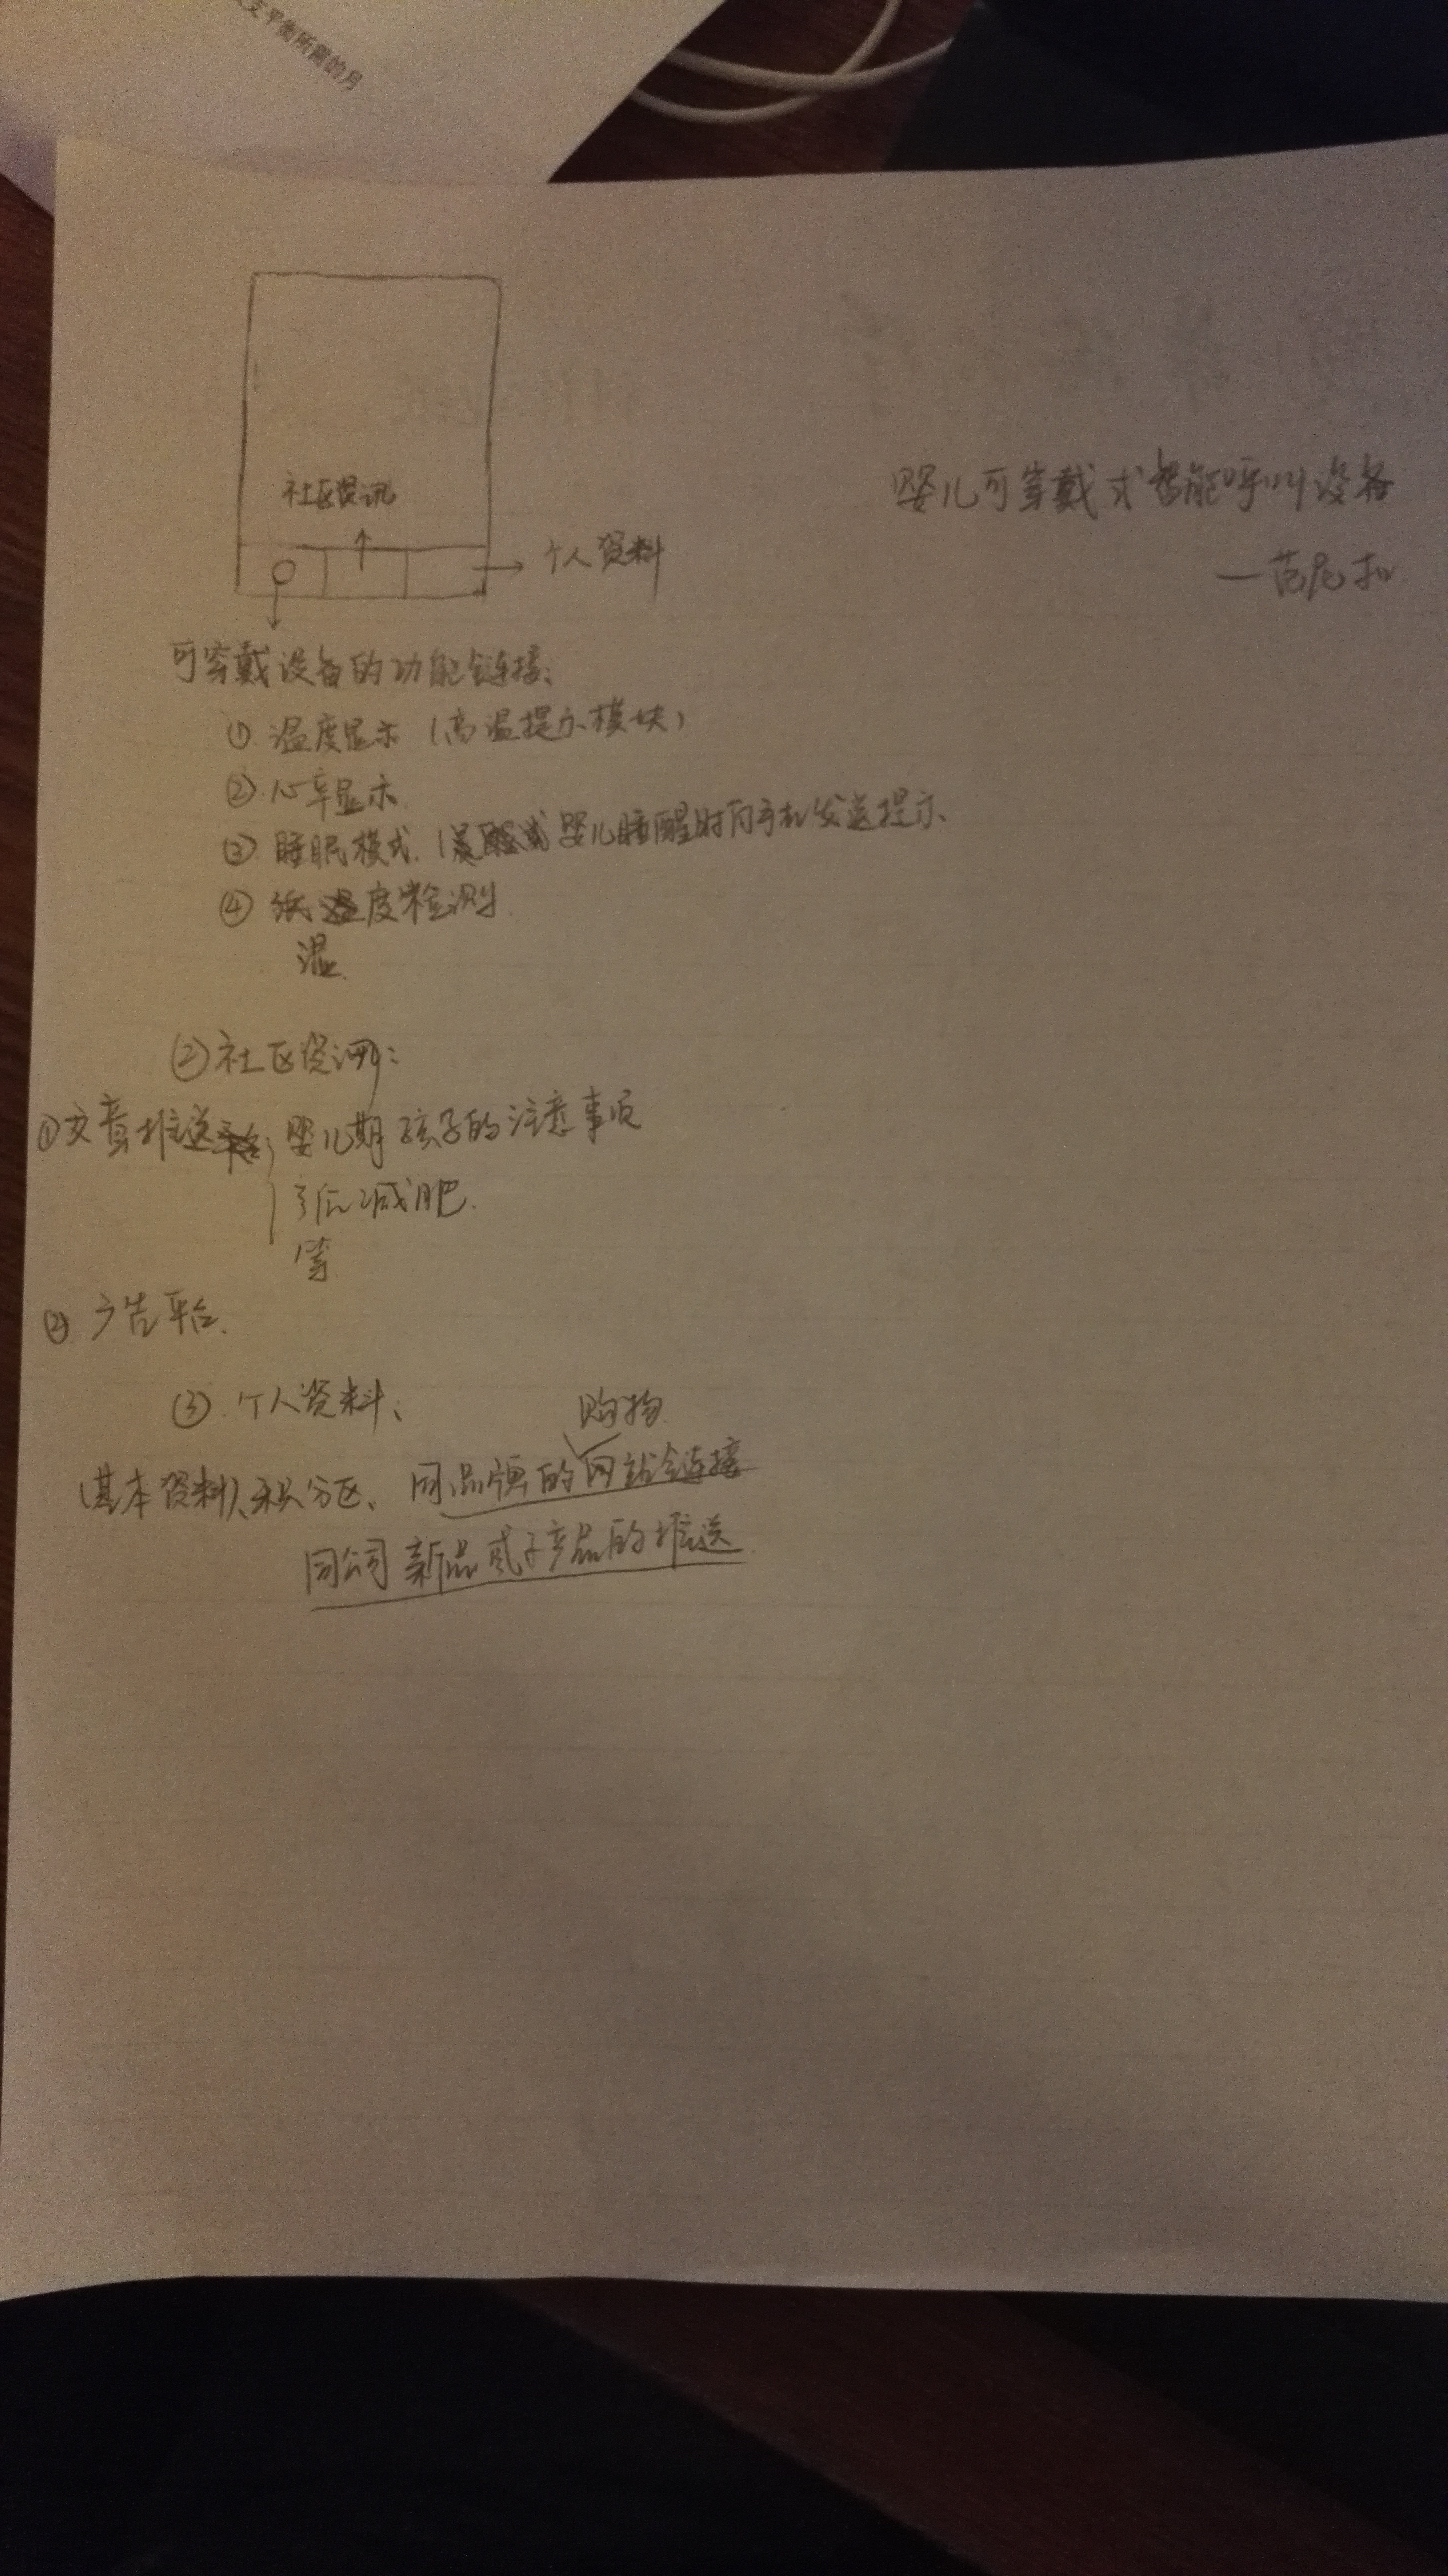 支平衡所需的月
社区资讯
个人资料
婴儿可穿戴式智能呼叫设备
可穿戴设备的功能链接:
① 温度显示 (高温提示模块)
② 心率显示
③ 睡眠模式. ( 婴儿睡醒时向手机发送提示
④ 度检测
湿
② 社区资讯:
① 文章推送 婴儿期孩子的注意事项
产后减肥.
等
② 广告平台.
③. 个人资料、
购物
(基本资料)、积分区、同品牌的网站链接
同公司新品或子产品的推送